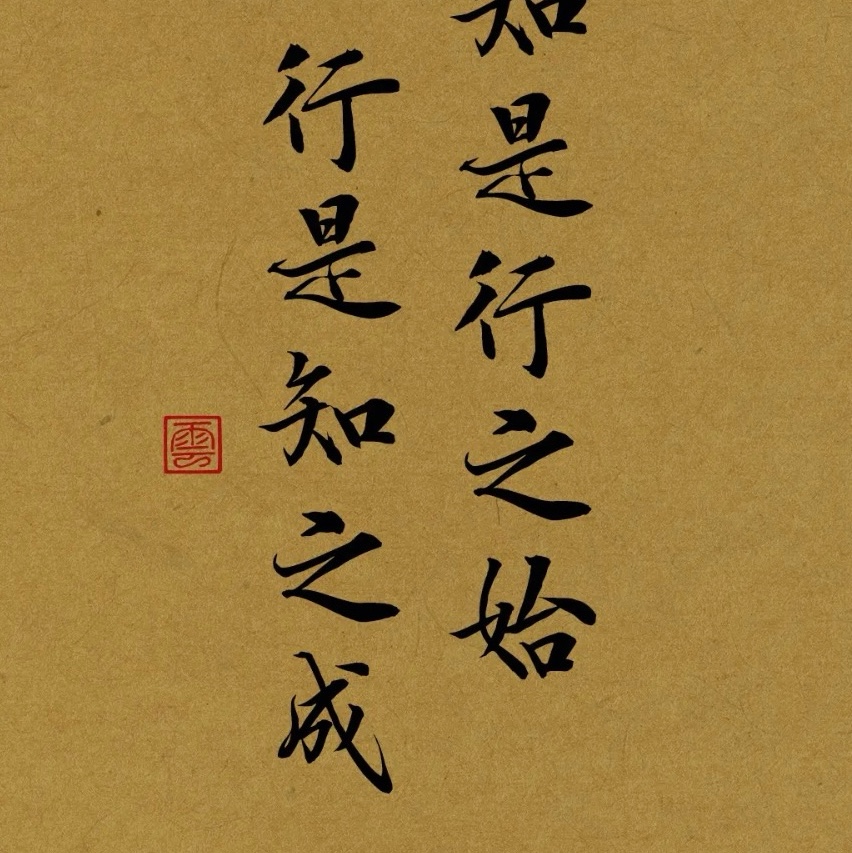 知是行之始
行是知之成
雲